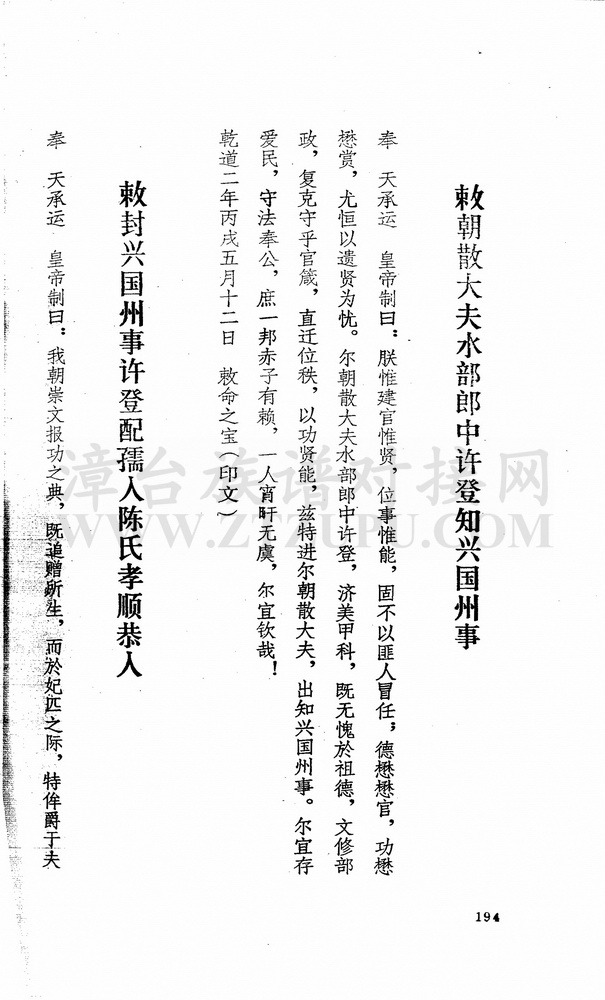 敕朝散大夫水部郎中许登知兴国州事
奉 天承运 皇帝制曰：朕惟建官惟贤，位事惟能，固不以匪人冒任；德懋懋官，功懋
懋赏，尤恒以遗贤为忧。尔朝散大夫水部郎中许登，济美甲科，既无愧於祖德，文修部
政，复克守乎官箴，直迁位秩，以功贤能，兹特进尔朝散大夫，出知兴国州事。尔宜存
爱民，守法奉公，庶一邦赤子有赖，一人宵旰无虞，尔宜钦哉！
乾道二年丙戌五月十二日 敕命之宝（印文）
敕封兴国州事许登配孺人陈氏孝顺恭人
奉 天承运 皇帝制曰：我朝崇文报功之典，既追赠所生，而於妃匹之际，特侔爵于夫
194
漳台族谱对接网
WWW.ZTZUPU.COM